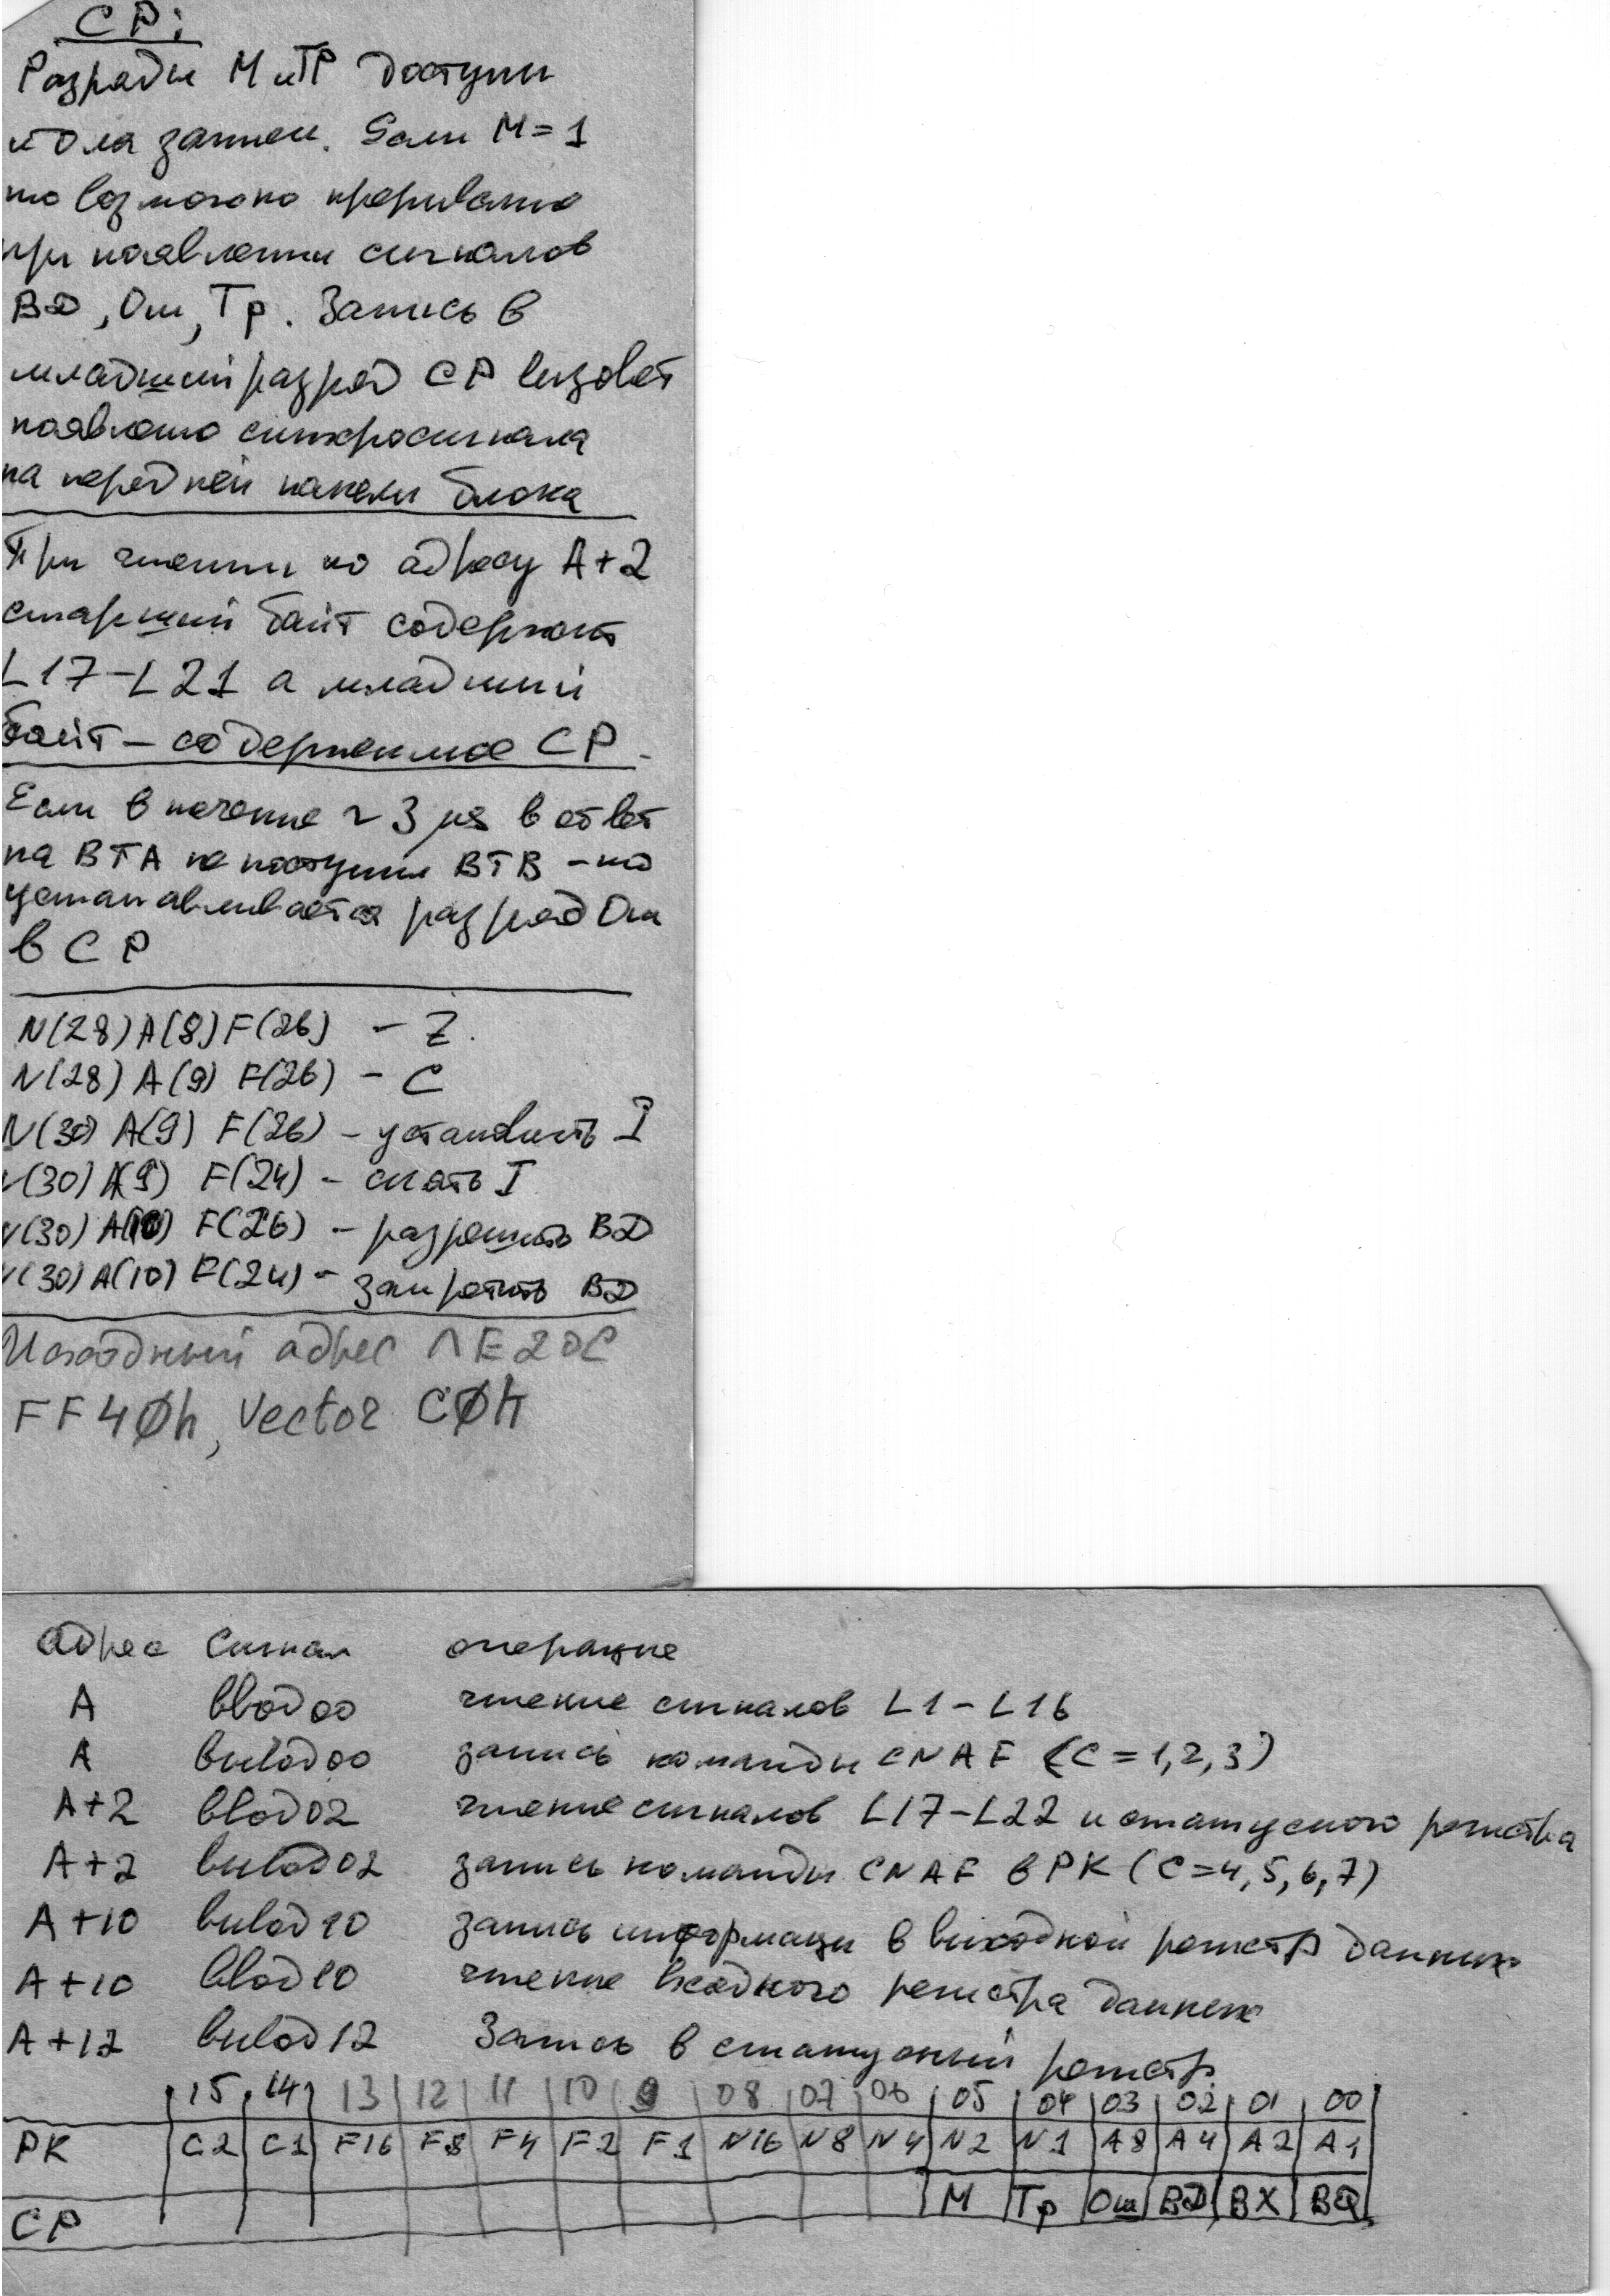 СР:
Разряды М и ТР доступны
и для записи. Если М=1
то возможно прерывание
при появлении сигналов
ВД, Ош, Тр. Запись в
младший разряд СР вызовет
появление синхросигнала
на передней панели блока
При чтении по адресу А+2
старший байт содержит
L17-L21 а младший
байт - содержимое СР.
Если в течение ~ 3 μs в ответ
на ВТА не поступил ВТВ - то
устанавливается разряд Ош
в СР
N(28) A(8) F(26) - Z
N(28) A(9) F(26) - C
N(30) A(9) F(26) - установить I
N(30) A(9) F(24) - снять I
N(30) A(10) F(26) - разрешить ВД
N(30) A(10) F(24) - запретить ВД
Исходный адрес
FF40h, Vector C0h
адрес сигнал операция
А ввод 00 чтение сигналов L1-L16
А вывод 00 запись команды CNAF (C=1,2,3)
А+2 ввод 02 чтение сигналов L17-L22 и статусного регистра
А+2 вывод 02 запись команды CNAF в РК (C=4,5,6,7)
А+10 вывод 10 запись информации в выходной регистр данных
А+10 ввод 10 чтение входного регистра данных
А+12 вывод 12 Запись в статусный регистр
15 14 13 12 11 10 9 08 07 06 05 04 03 02 01 00
РК C2 C1 F16 F8 F4 F2 F1 N16 N8 N4 N2 N1 A8 A4 A2 A1
СР М Тр Ош ВД ВХ ВQ